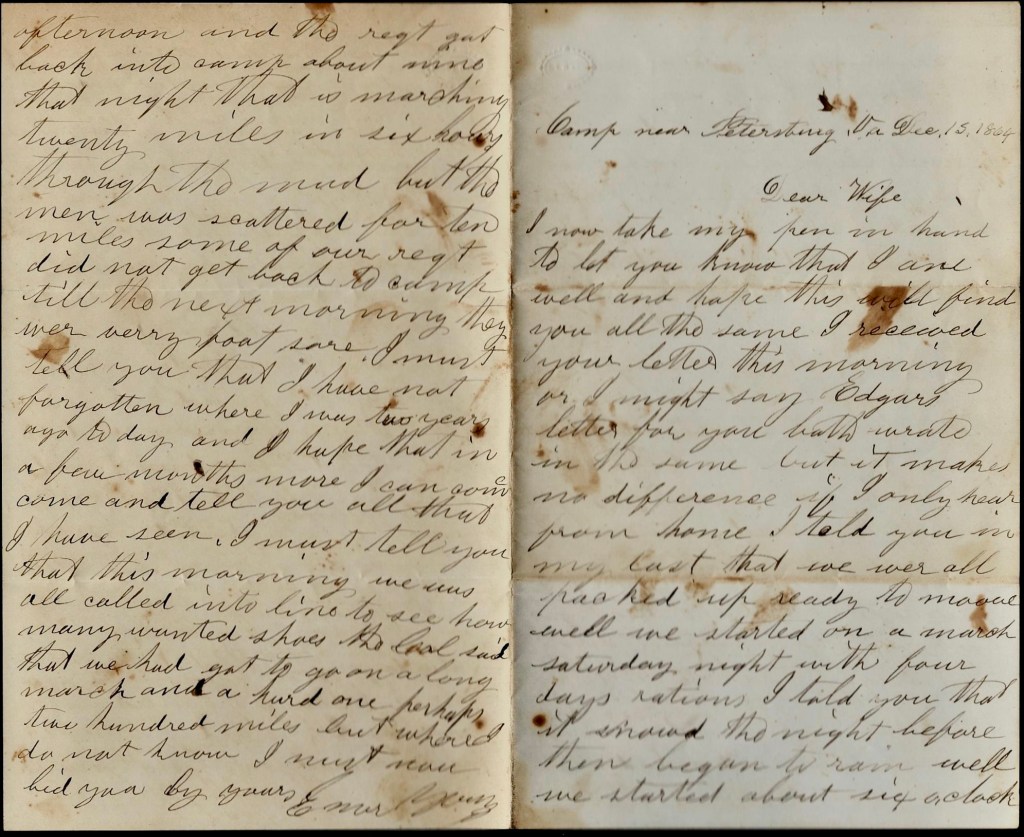 Camp near Petersburg Va Dec, 15, 1864
Dear Wife
I now take my pen in hand
to let you know that I ame
well and hope this will find
you all the same I received
your letter this morning
or I might say Edgars
letter for you both wrote
in the same but it makes
no difference if I only hear
from home I told you in
my last that we wer all
packed up ready to moove
well we started on a march
saturday night with four
days rations I told you that
it snowd the night before
then began to rain well
we started about six o,clock
afternoon and the regt got
back into camp about nine
that night that is marching
twenty miles in six hours
through the mud but the
men was scattered for ten
miles some of our regt
did not get back to camp
till the next morning they
wer verry foot sore. I must
tell you that I have not
forgotten where I was two years
ago to day and I hope that in
a few months more I can com
come and tell you all that
I have seen. I must tell you
that this morning we was
all called into line to see how
many wanted shoes the Col said
that we had got to go on a long
march and a hard one perhaps
two hundred miles but where I
do not know I must now
bid you by yours